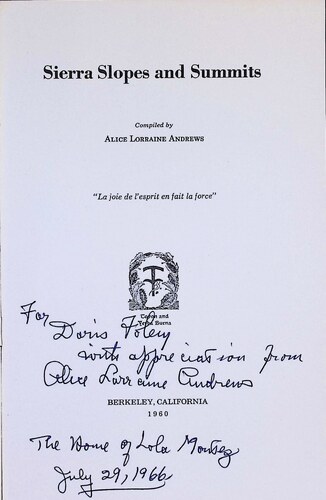 Sierra Slopes and Summits
Compiled by
ALICE LORRAINE ANDREWS
"La joie de l'esprit en fait la force"
and
For
Doris Foley
with appreciation from
Alice Lorraine Andrews
BERKELEY, CALIFORNIA
1960
The Home of Lola Montez
July 29, 1966